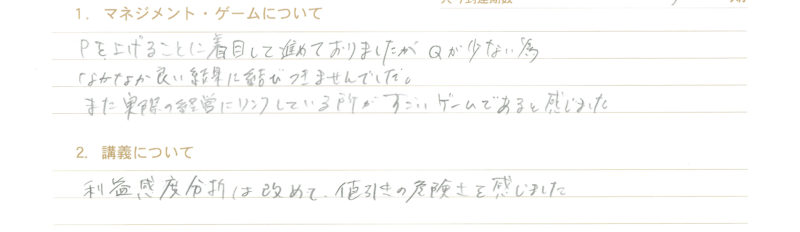 1. マネジメント・ゲームについて
Pを上げることに着目して進めておりましたが Qが少ない為
なかなか良い結果に結びつきませんでした。
また実際の経営にリンクしている所が すごいゲームであると感じました
2. 講義について
利益感度分析は改めて、値引きの危険さを感じました